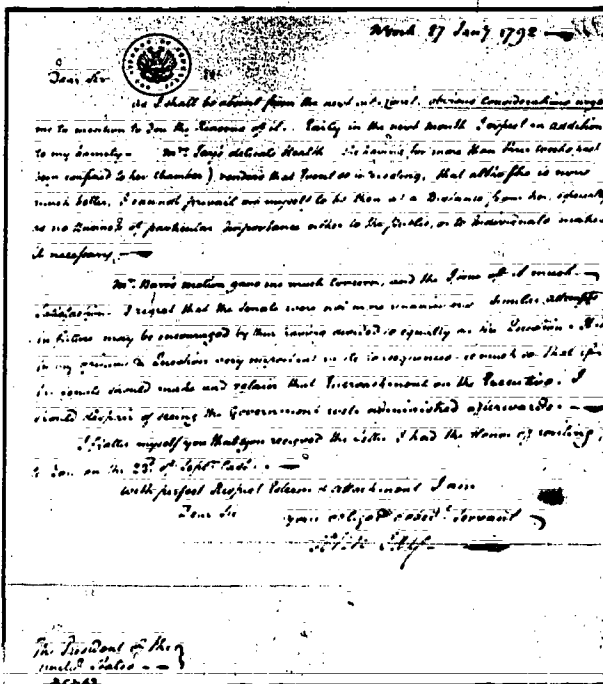 NYork 27 Jany 1792
Dear Sir
As I shall be absent from the next Court, obvious Considerations urge
me to mention to You the Reasons of it. Early in the next month I expect an addition
to my family. Mrs. Jay's delicate Health (she having for more than three weeks past
been confined to her chamber), renders that Event so interesting, that altho she is now
much better, I cannot prevail on myself to be then at a Distance from her, especially
as no Business of particular Importance either to the public, or to Individuals makes
it necessary.
Mr. motion gave me much Concern, and the Issue of it much
Satisfaction. I regret that the Senate were not more unanimous Similar attempts
in future may be encouraged by their having divided so equally on this Occasion. It is
in my opinion a Question very important in its consequences so much so that if
the senate should make and retain that Encroachment on the Executive. I
should despair of seeing the Government well administered afterwards.
I flatter myself you that you received the Letter I had the Honor of writing
to You on the 23d of Septr. last.
With perfect Respect Esteem & Attachment I am
Dear Sir your obliged & obedt. Servant
John Jay
The President of the
united States